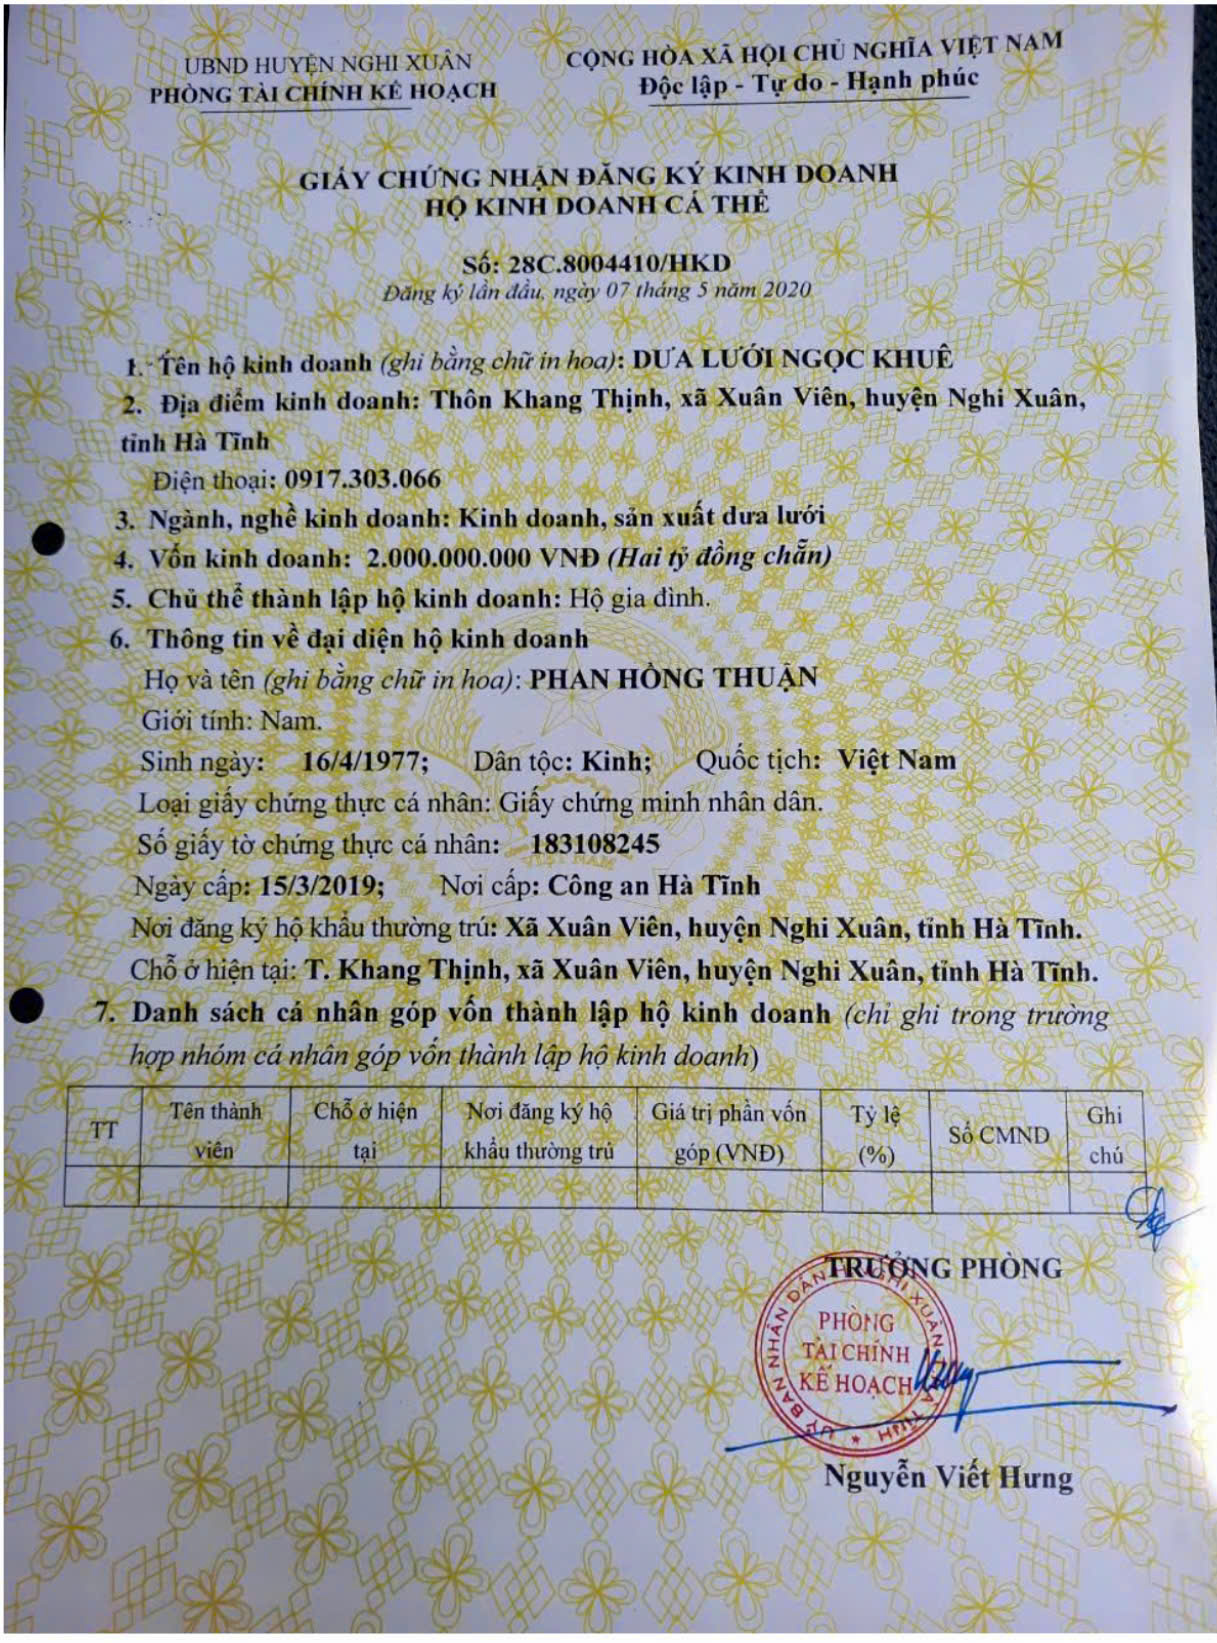 UBND HUYỆN NGHI XUÂN
PHÒNG TÀI CHÍNH KẾ HOẠCH
CỘNG HÒA XÃ HỘI CHỦ NGHĨA VIỆT NAM
Độc lập - Tự do - Hạnh phúc
GIẤY CHỨNG NHẬN ĐĂNG KÝ KINH DOANH
HỘ KINH DOANH CÁ THỂ
Số: 28C.8004410/HKD
Đăng ký lần đầu, ngày 07 tháng 5 năm 2020
1. Tên hộ kinh doanh (ghi bằng chữ in hoa): DƯA LƯỚI NGỌC KHUÊ
2. Địa điểm kinh doanh: Thôn Khang Thịnh, xã Xuân Viên, huyện Nghi Xuân,
tỉnh Hà Tĩnh
Điện thoại: 0917.303.066
3. Ngành, nghề kinh doanh: Kinh doanh, sản xuất dưa lưới
4. Vốn kinh doanh: 2.000.000.000 VNĐ (Hai tỷ đồng chẵn)
5. Chủ thể thành lập hộ kinh doanh: Hộ gia đình.
6. Thông tin về đại diện hộ kinh doanh
Họ và tên (ghi bằng chữ in hoa): PHAN HỒNG THUẬN
Giới tính: Nam.
Sinh ngày: 16/4/1977; Dân tộc: Kinh; Quốc tịch: Việt Nam
Loại giấy chứng thực cá nhân: Giấy chứng minh nhân dân.
Số giấy tờ chứng thực cá nhân: 183108245
Ngày cấp: 15/3/2019; Nơi cấp: Công an Hà Tĩnh
Nơi đăng ký hộ khẩu thường trú: Xã Xuân Viên, huyện Nghi Xuân, tỉnh Hà Tĩnh.
Chỗ ở hiện tại: T. Khang Thịnh, xã Xuân Viên, huyện Nghi Xuân, tỉnh Hà Tĩnh.
7. Danh sách cá nhân góp vốn thành lập hộ kinh doanh (chỉ ghi trong trường
hợp nhóm cá nhân góp vốn thành lập hộ kinh doanh)
TT
Tên thành
viên
Chỗ ở hiện
tại
Nơi đăng ký hộ
khẩu thường trú
Giá trị phần vốn
góp (VNĐ)
Tỷ lệ
(%)
Số CMND
Ghi
chú
TRƯỞNG PHÒNG
PHÒNG
TÀI CHÍNH
KẾ HOẠCH
Nguyễn Viết Hưng